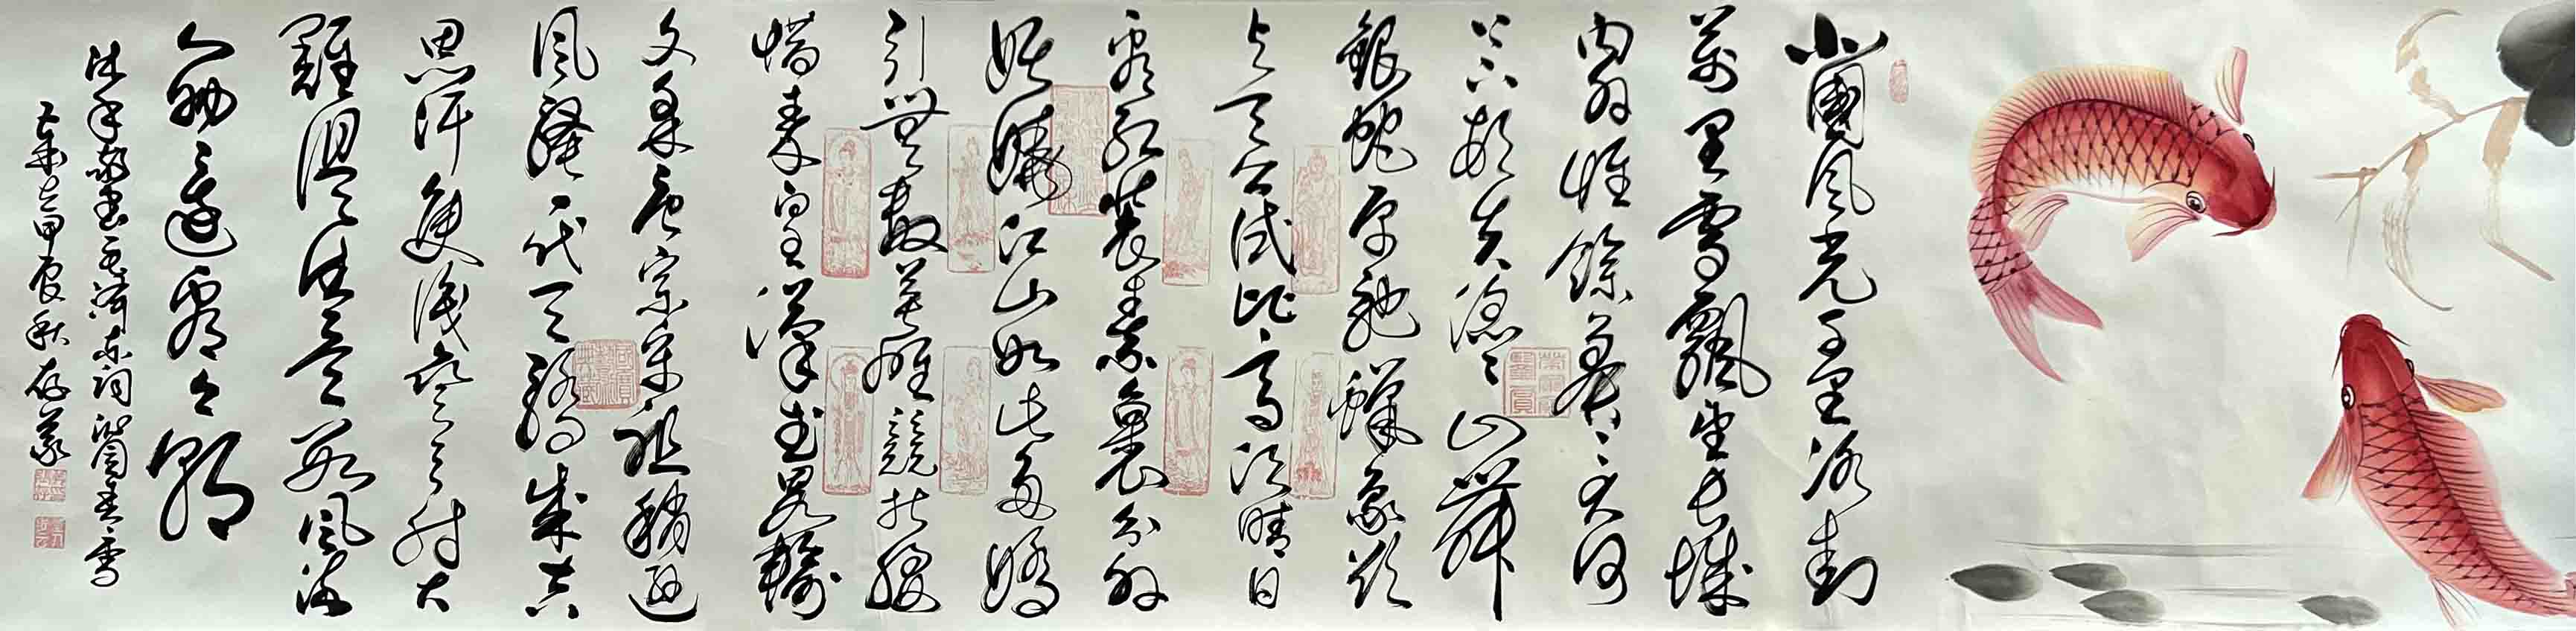 北國風光千里冰封
萬里雪飄望長城
内外惟餘莽〻大河
上下頓失滔〻山舞
銀蛇原馳蠟象欲
與天公試比高須晴日
看紅裝素裹分外
妖嬈江山如此多嬌
引無數英雄競折腰
惜秦皇漢武略輸
文采唐宗宋祖稍遜
風騷一代天驕成吉
思汗隻識彎弓射大
雕俱往矣數風流
人物還看今朝
沐手敬書毛澤東詞沁園春雪
甲辰秋存義